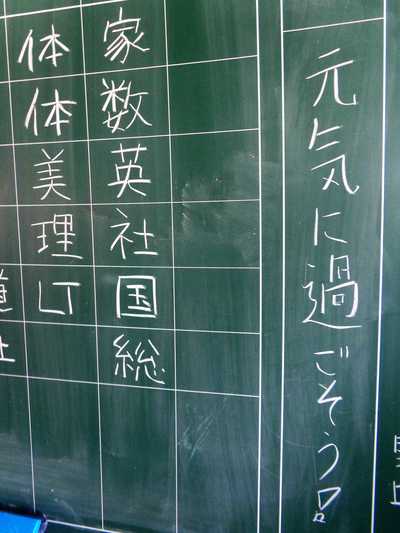 元気に過ごそう。
家数英社国総
体体美理LT